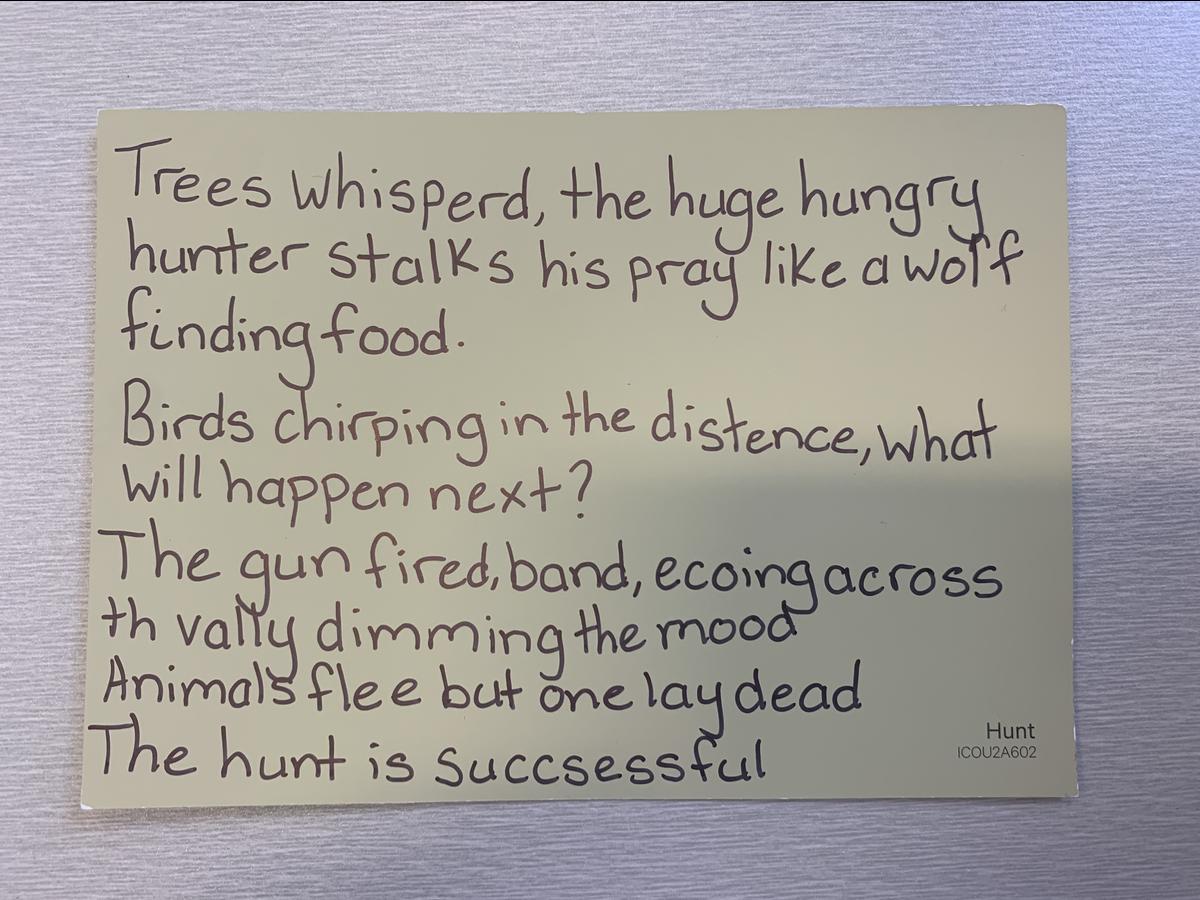 Trees whisperd, the huge hungry
hunter stalks his pray like a wolf
finding food.
Birds chirping in the distence, what
will happen next?
The gun fired, band, ecoing across
th vally dimming the mood
Animals flee but one lay dead
The hunt is succsessful
Hunt
ICOU2A602